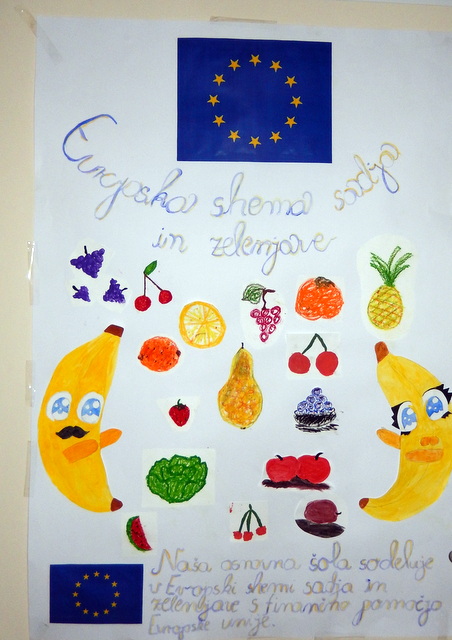 Evropska shema sadja
in zelenjave
Naša osnovna šola sodeluje
v Evropski shemi sadja in
zelenjave s finančno pomočjo
Evropske unije.